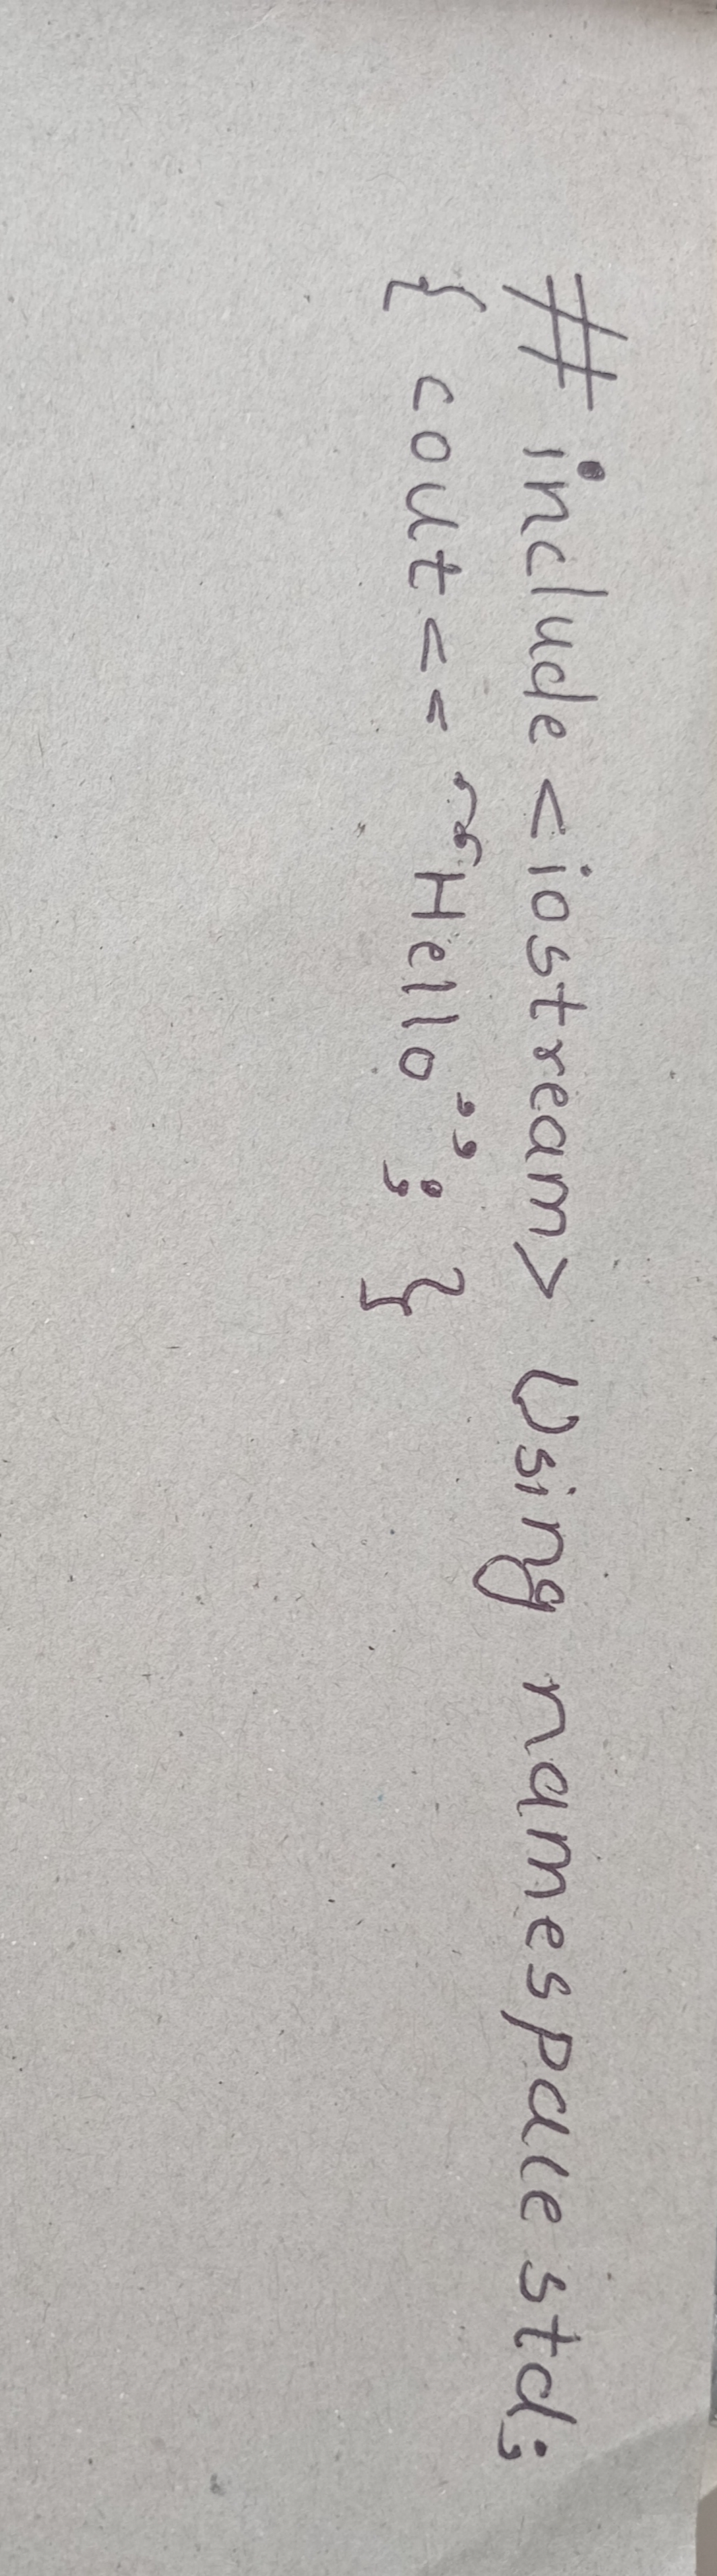 # include <iostream> Using namespace std;
{ cout<< “Hello”; }